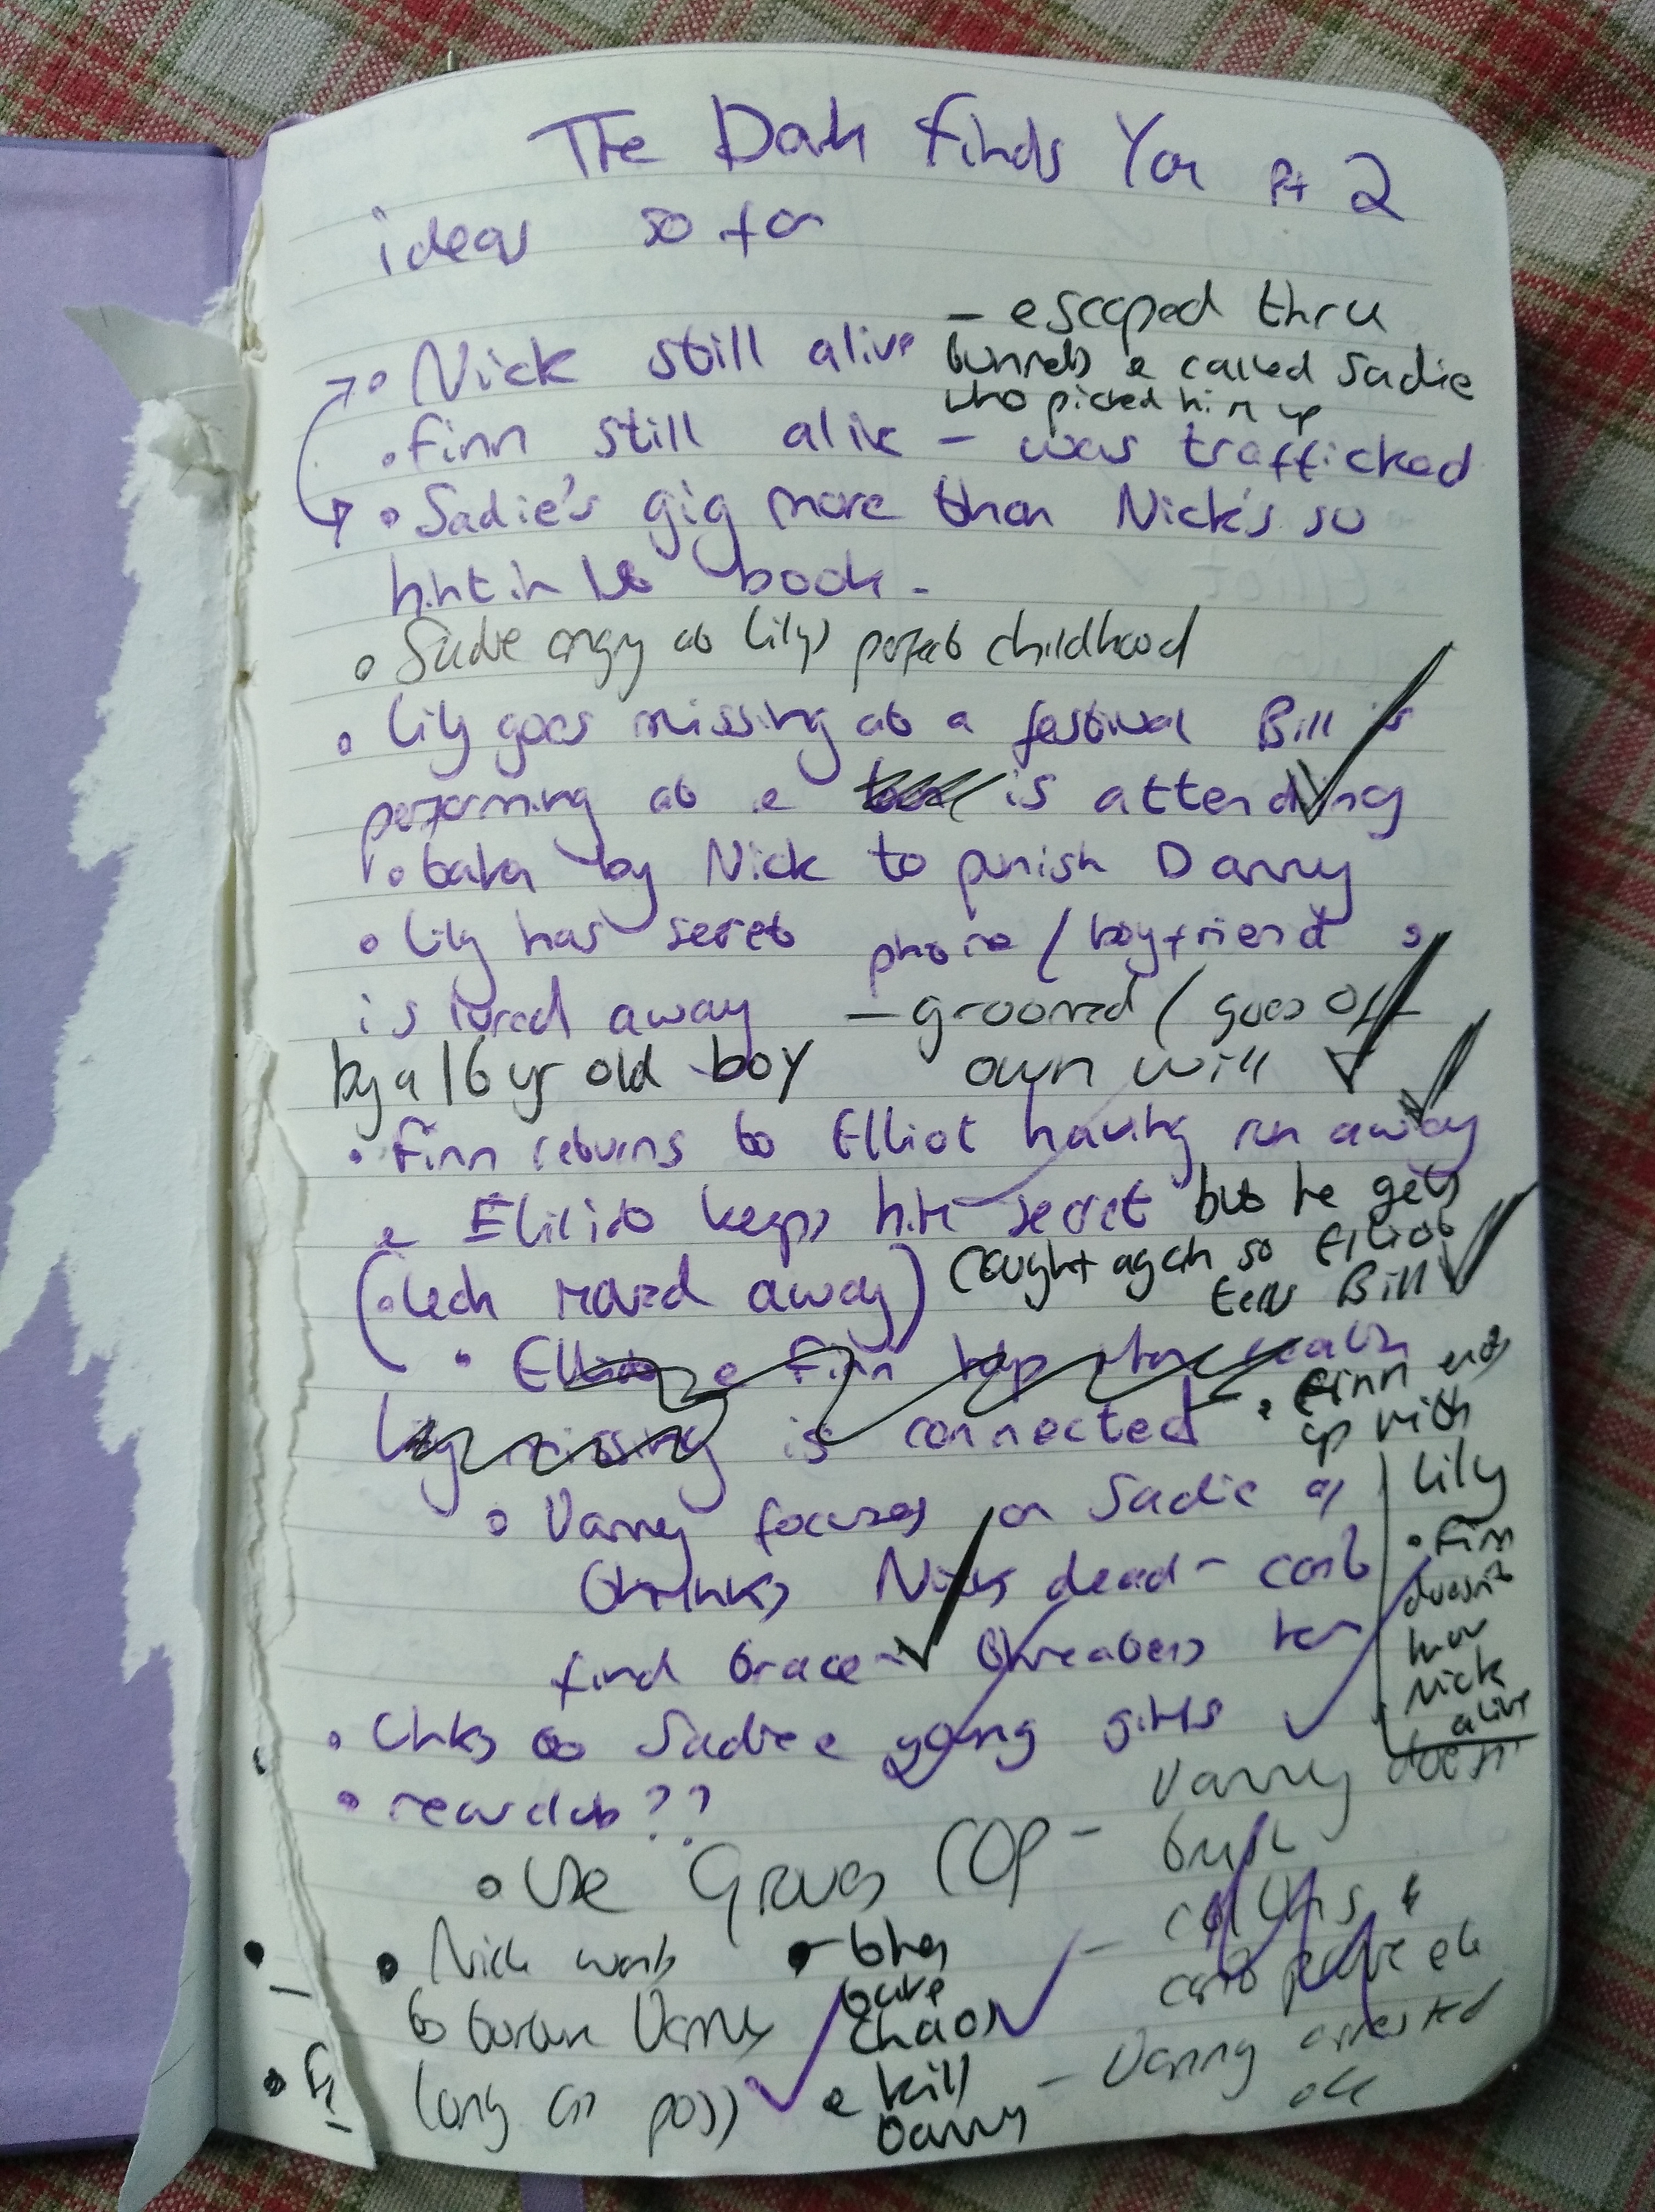 The Dark Finds You Pt 2
ideas so far
• Nick still alive – escaped thru
tunnels & called Sadie
who picked him up
• Finn still alive – was trafficked
• Sadie's gig more than Nick's so
hint in 1st book -
• Sadie angry at Lily's perfect childhood
• Lily goes missing at a festival Bill is
performing at & is attending
• taken by Nick to punish Danny
• Lily has secret phone / boyfriend &
is lured away – groomed / goes off
by a 16 yr old boy own will
• Finn returns to Elliot having run away
& Elliot keeps him secret but he gets
caught again so Elliot
tells Bill
(• Leah moved away)
• Elliot & Finn help them realise
Lily missing is connected
• Finn ends
up with
Lily
• Finn
doesn't
know
Nick
alive
• Danny focuses on Sadie as
thinks Nick's dead – can't
find Grace – threatens her
• links to Sadie & young girls
• new club??
• Use Graves COP – Danny doesn't
trust
& can't prove etc
– Danny arrested
etc
• Nick wants
to torture Danny
long as poss
• – then
chaos
& kill
Danny